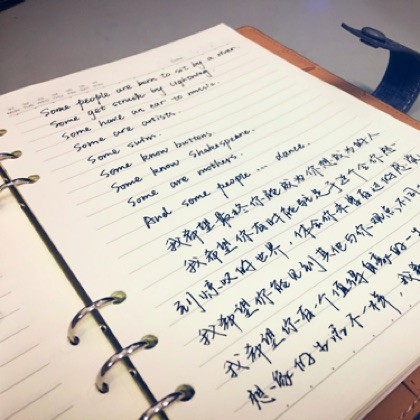 Some people are born to sit by a river.
Some get struck by lightning.
Some have an ear to music.
Some are artists.
Some swim.
Some know buttons.
Some know Shakespeare.
Some are mothers.
And some people ... dance.
我希望最终你能成为你想成为的人
我希望你有时能驻足于这个令你
到惊叹的世界，体会你未曾有过的
我希望你能见到其他与你观点不同
我希望你有个值得自豪的一
想 你的 不一样，我